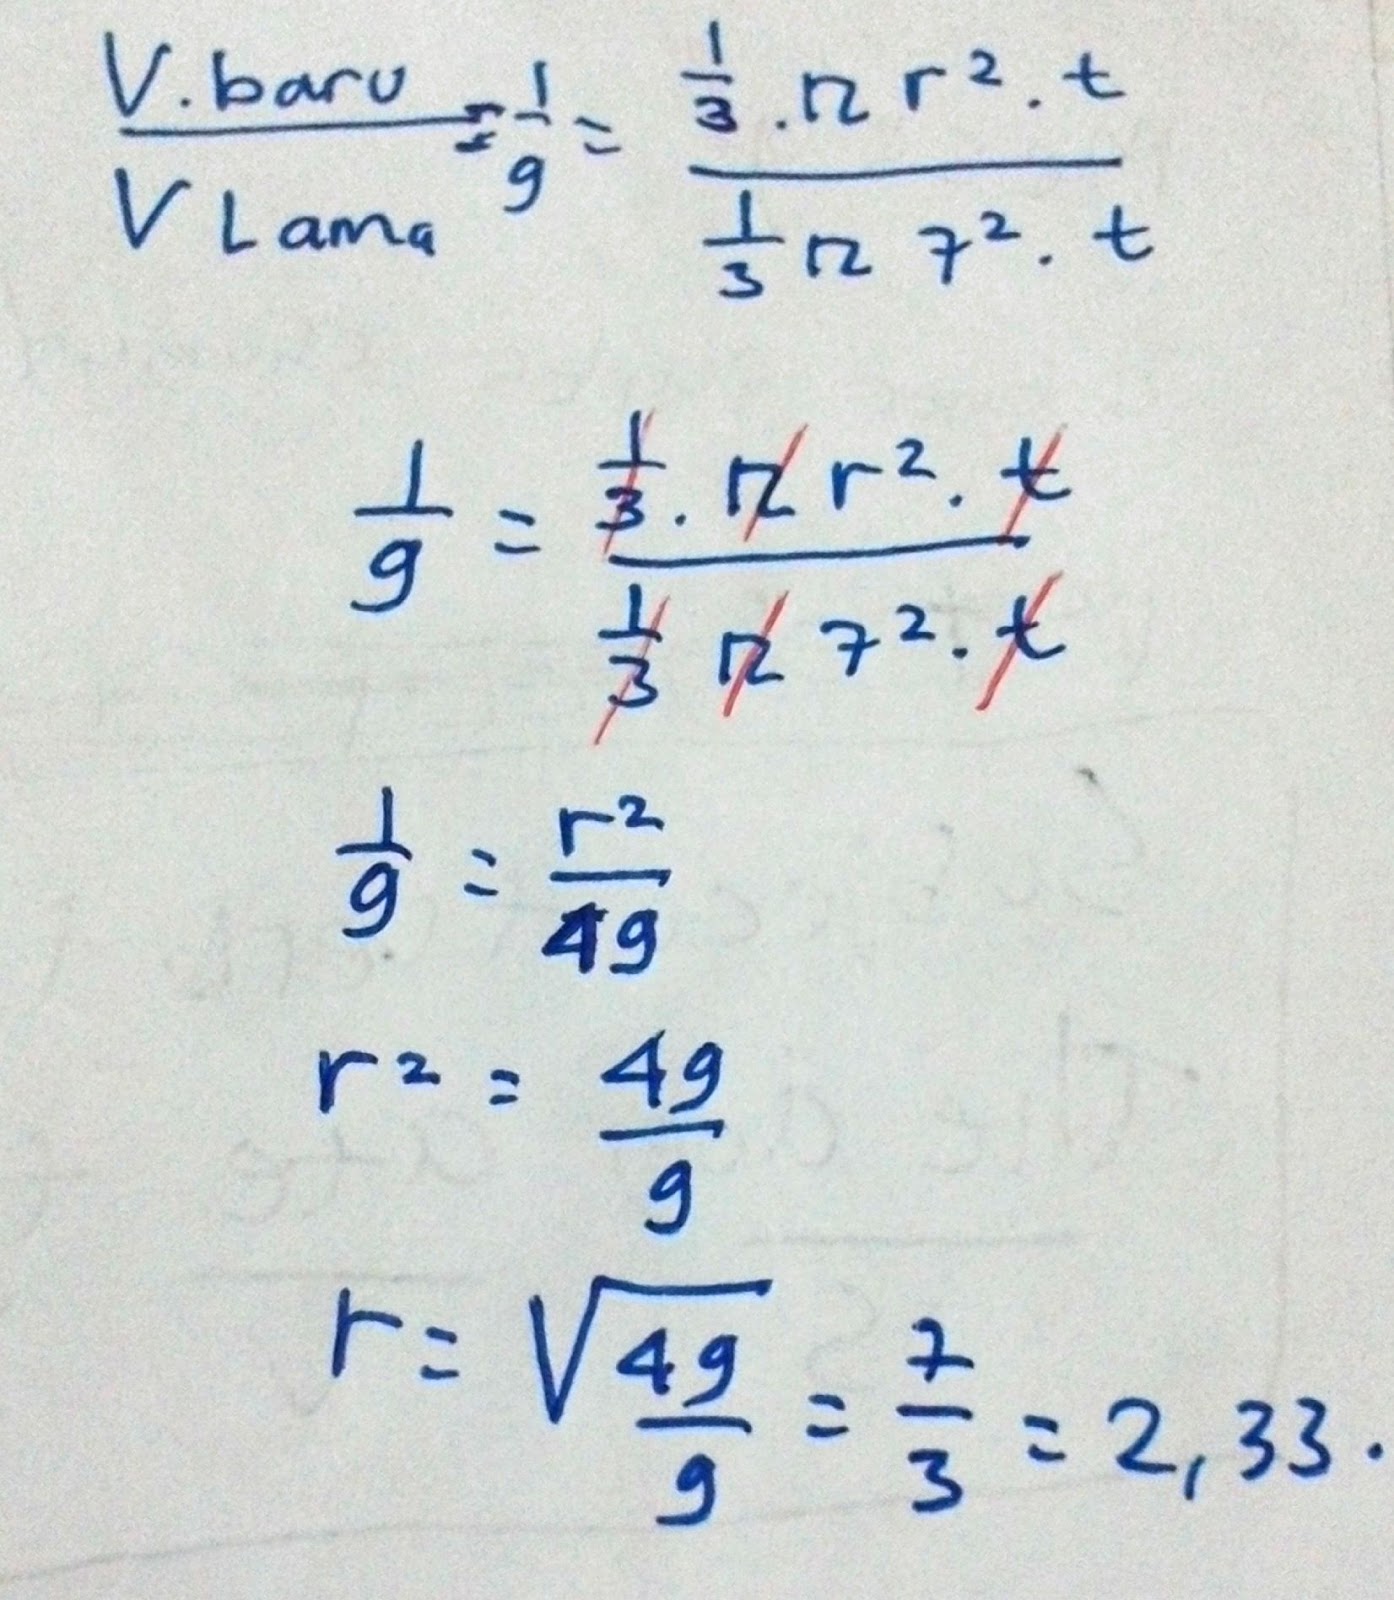 V. baru / V Lama = 1/9 = 1/3 . π r² . t / 1/3 π 7² . t
1/9 = 1/3 . π r² . t / 1/3 π 7² . t
1/9 = r²/49
r² = 49/9
r = √49/9 = 7/3 = 2,33.